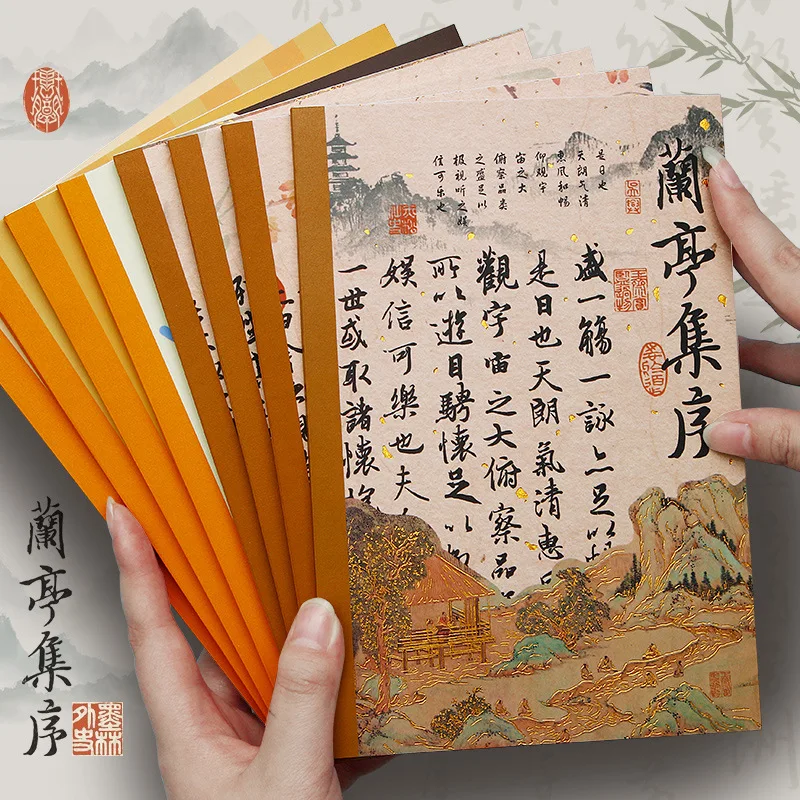 蘭亭集序
是日也
天朗气清
惠风和畅
仰观宇
宙之大
俯察品类
之盛足以
极视听之娱
信可乐也
盛一觴一詠亦足以
是日也天朗氣清惠
觀宇宙之大俯察品
所以遊目騁懷足以
娱信可樂也夫
一世或取諸懷
蘭亭集序